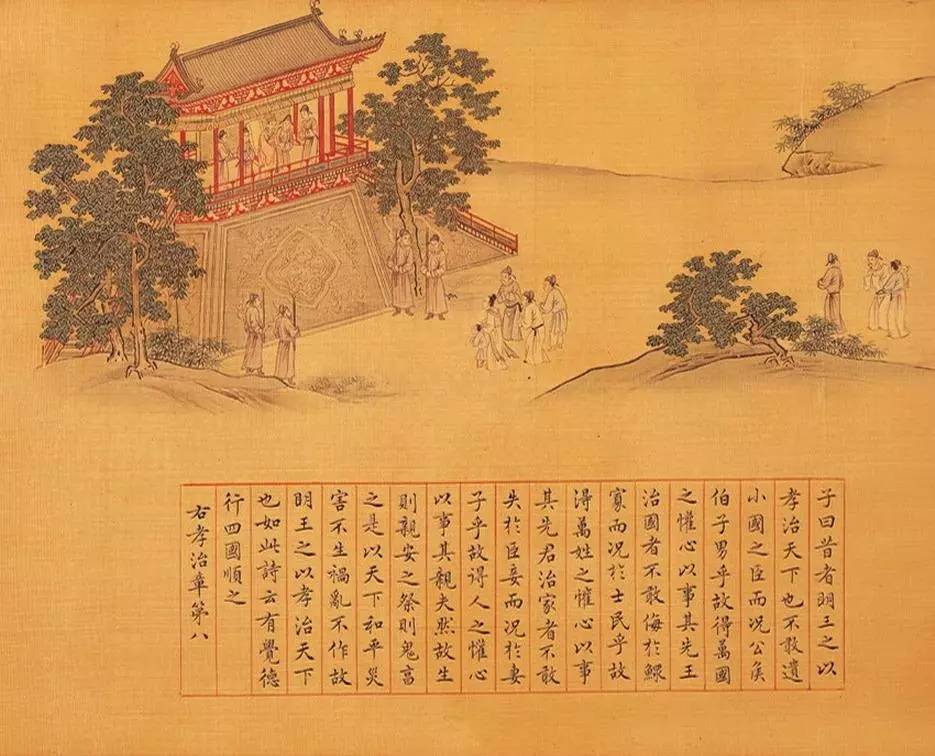 子曰昔者明王之以
孝治天下也不敢遺
小國之臣而况公矦
伯子男乎故得萬國
之懽心以事其先王
治國者不敢侮於鰥
寡而况於士民乎故
得萬姓之懽心以事
其先君治家者不敢
失於臣妾而况於妻
子乎故得人之懽心
以事其親夫然故生
則親安之祭則鬼亯
之是以天下和平災
害不生禍亂不作故
明王之以孝治天下
也如此詩云有覺德
行四國順之
右孝治章第八